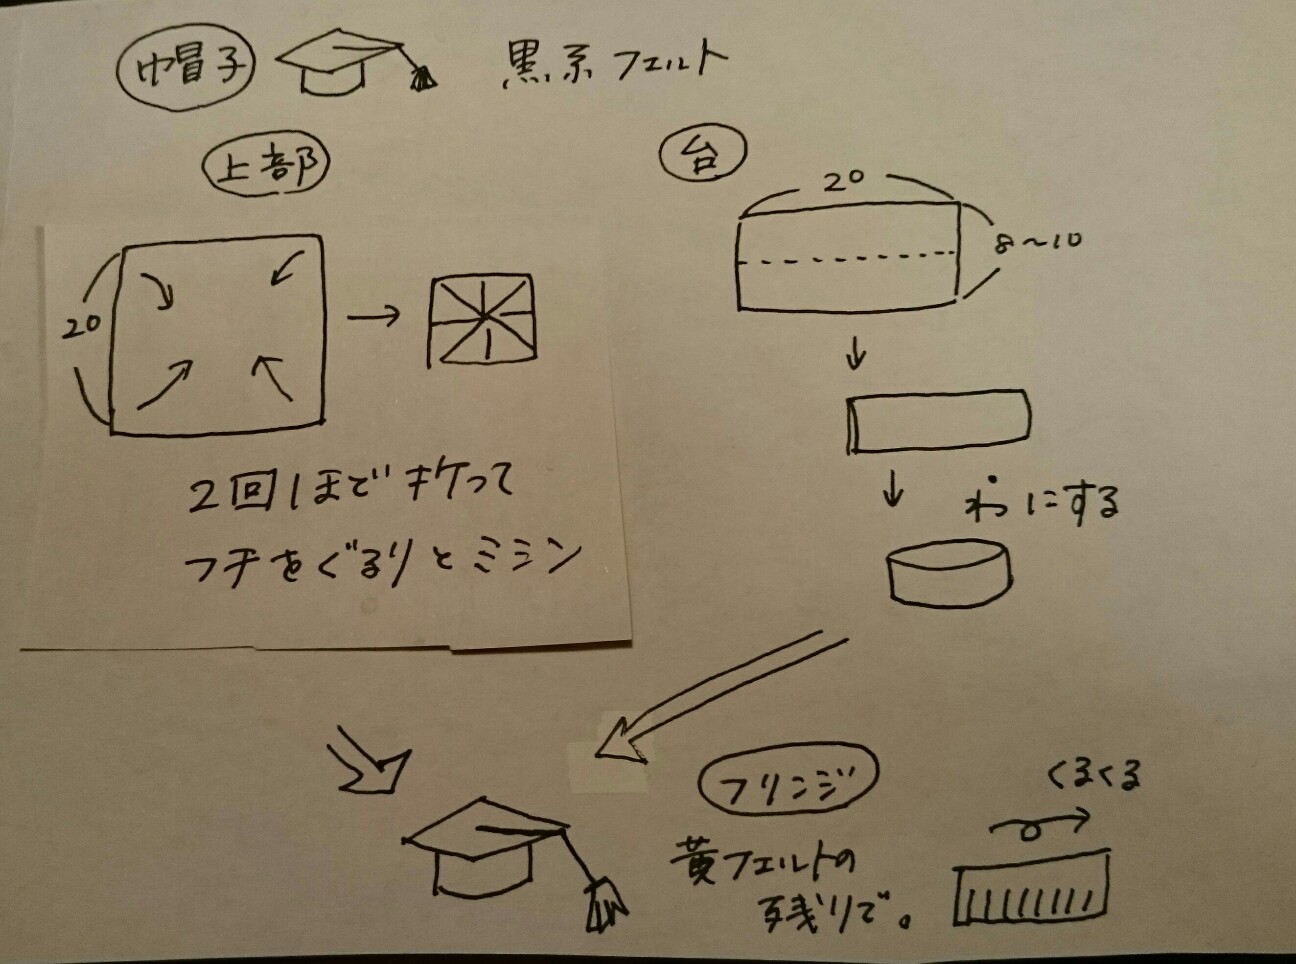 帽子
黒系フェルト
上部
20
2回ほどオケって
フチをぐるりとミシン
台
20
8〜10
わにする
フリンジ
黄フェルトの
残りで。
くるくる